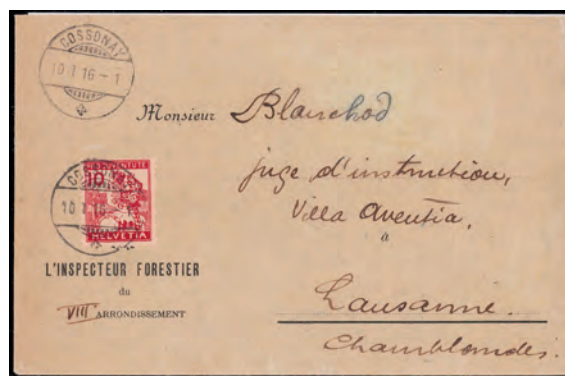 COSSONAY
10.I.16-1
Monsieur Blanchod
juge d'instruction,
Villa Aventia,
à
Lausanne.
Chamblandes.
PRO JUVENTUTE
10
HELVETIA
COSSONAY
10.I.16
L'INSPECTEUR FORESTIER
du
VIII ARRONDISSEMENT